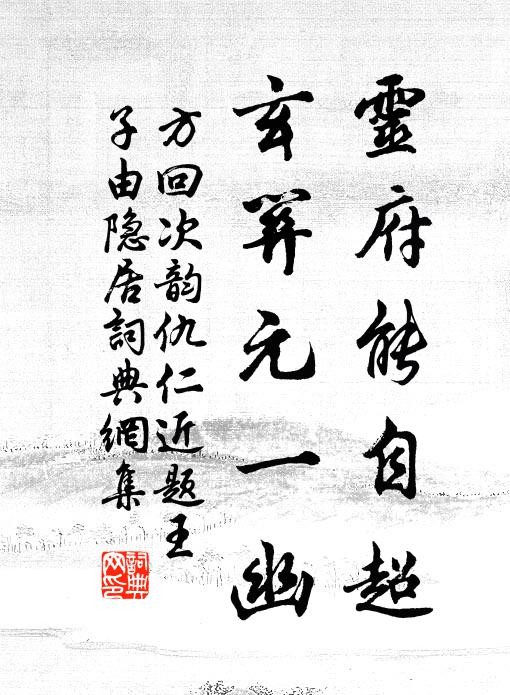 靈府能自超
玄關元一幽
方回次韵仇仁近題王
子由隐居詞典網集
詞典
网印